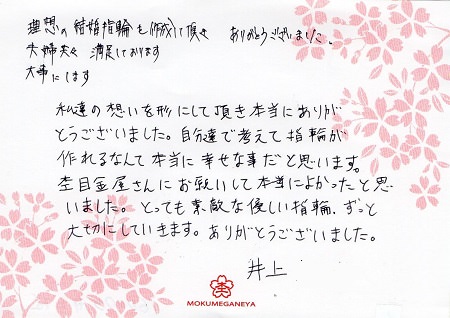 理想の結婚指輪を作成して頂き ありがとうございました。
夫婦共々 満足しております
大事にします
私達の想いを形にして頂き本当にありが
とうございました。自分達で考えて指輪が
作れるなんて本当に幸せな事だと思います。
杢目金屋さんにお願いして本当によかったと思
いました。とっても素敵な優しい指輪、ずっと
大切にしていきます。ありがとうございました。
井上
MOKUMEGANEYA